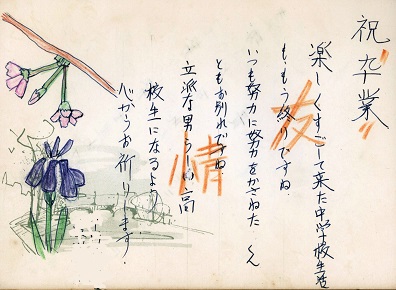 祝"卒業"
楽しくすごして来た中学校生活
ももう終りですね。
いつも努力に努力をかさねた　くん
ともお別れですね
立派な男らしい高
校生になるよう
心からお祈りします。
友情